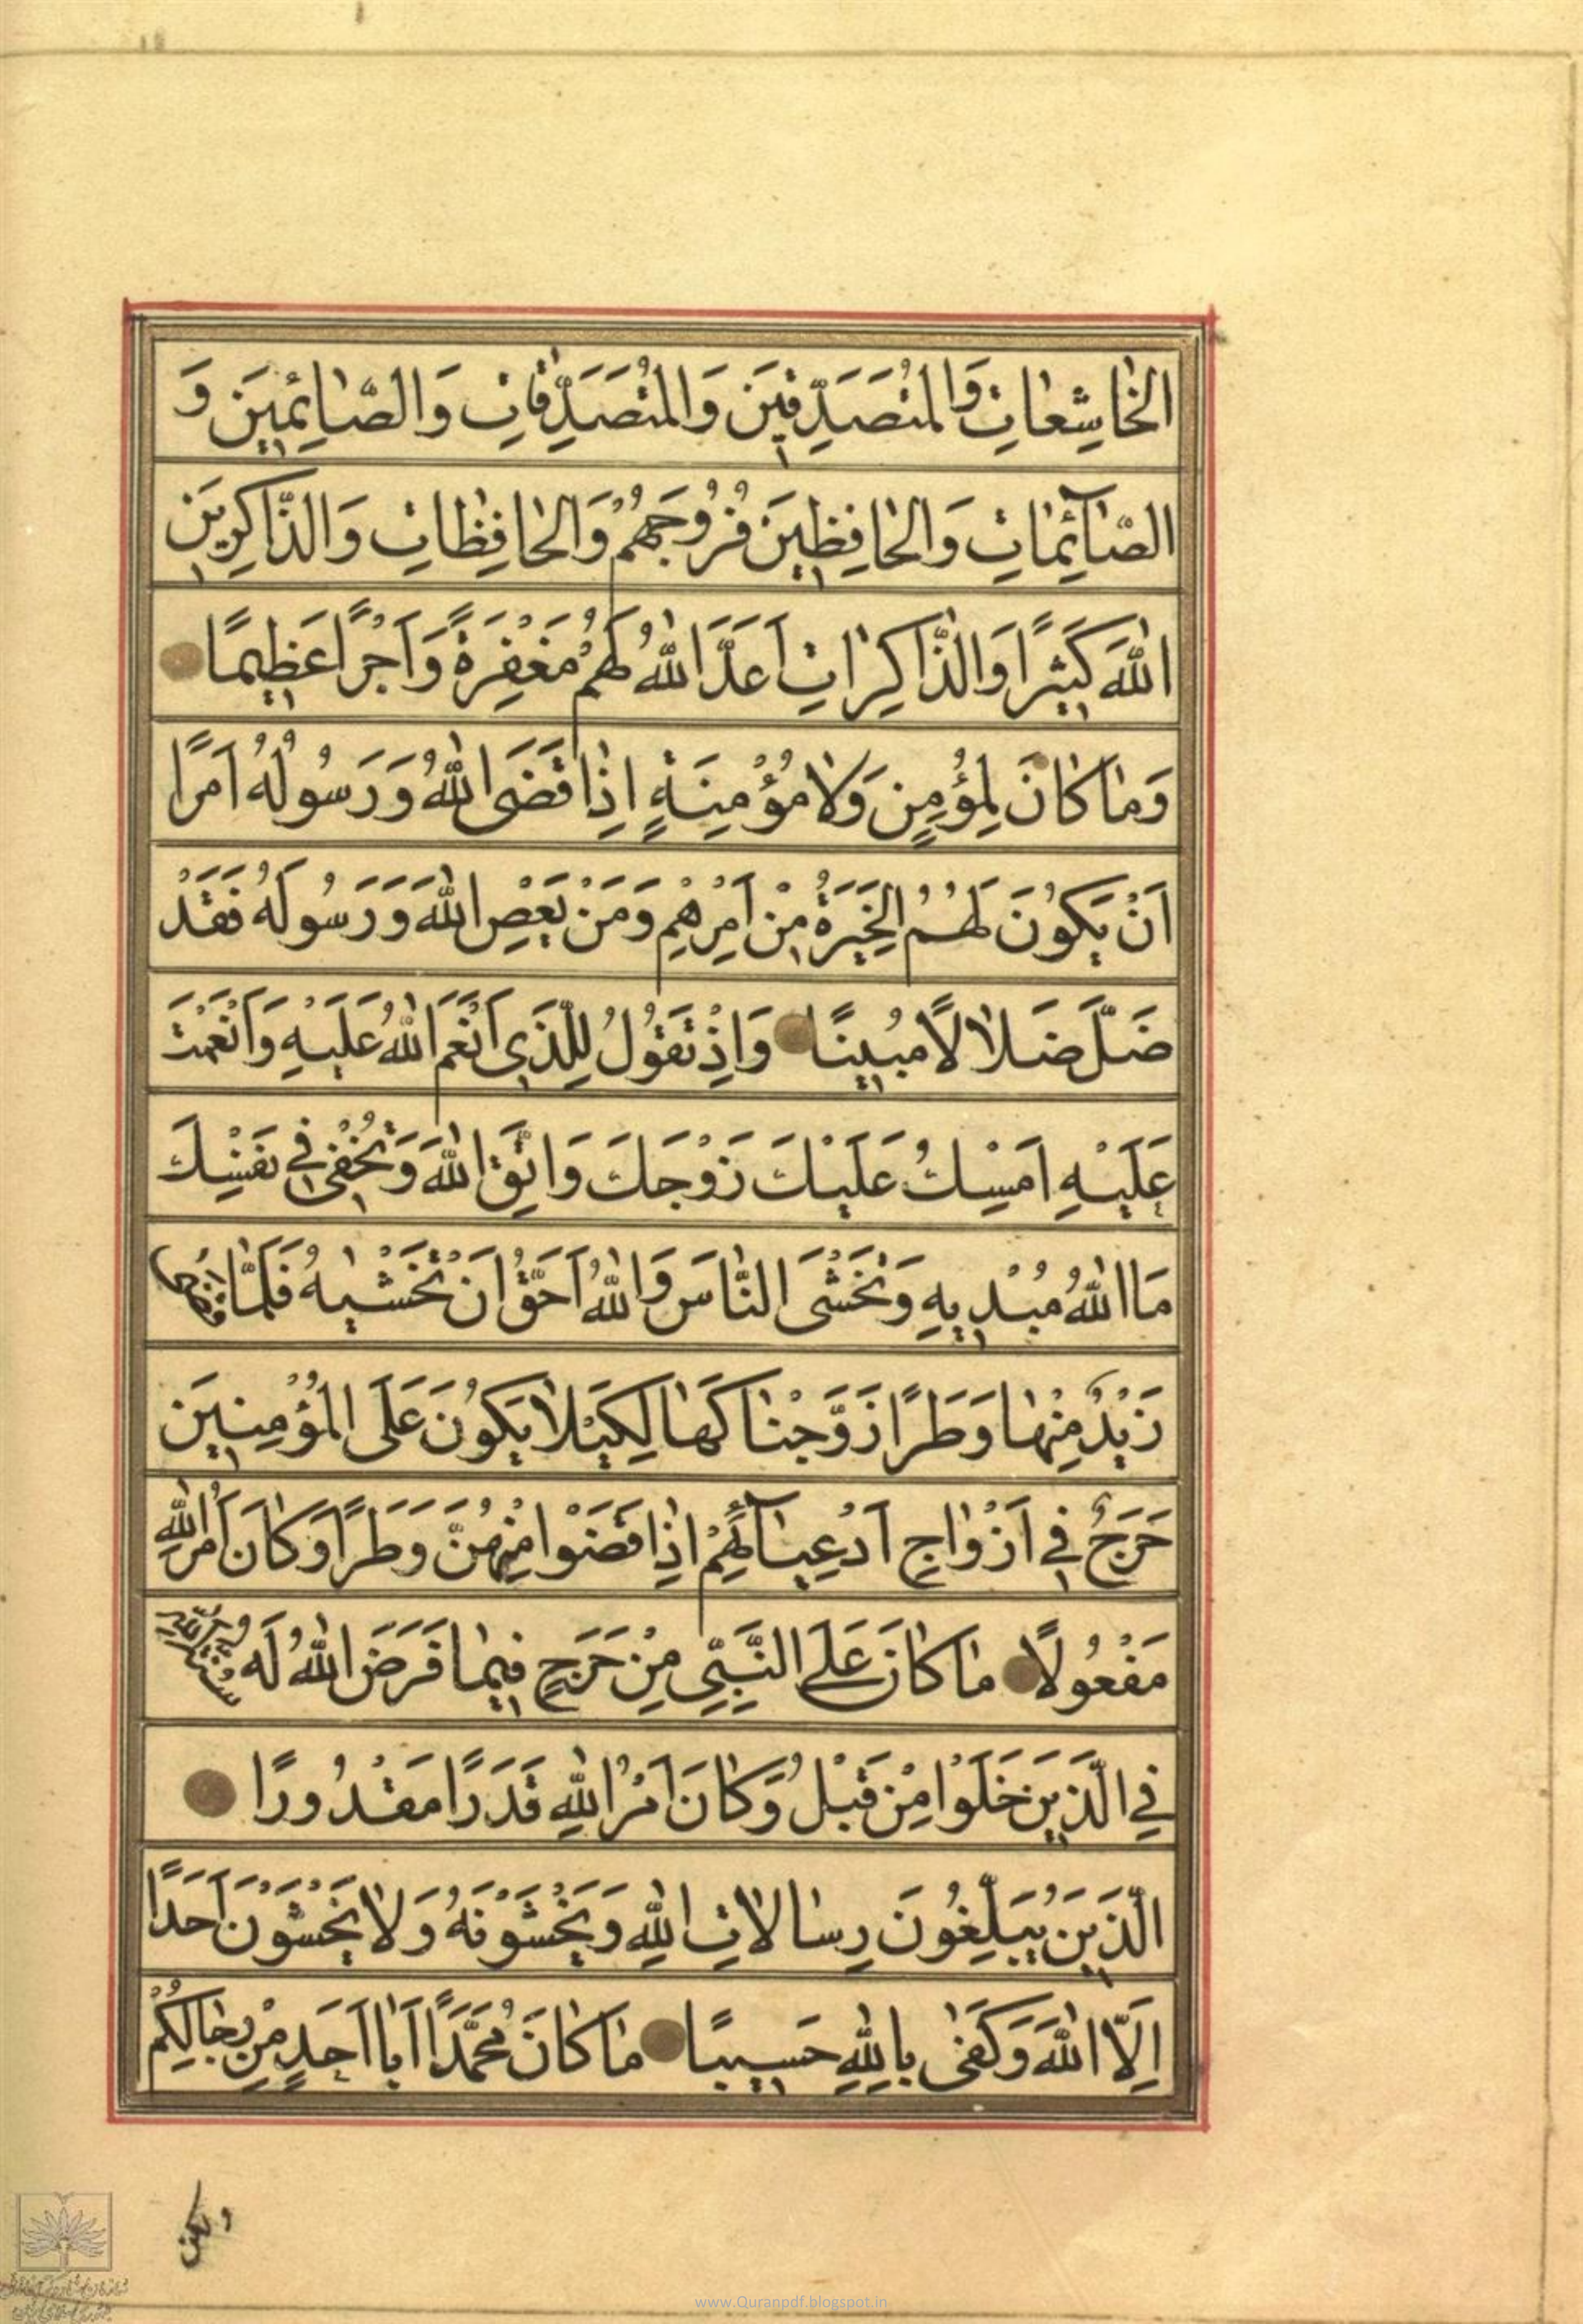 الخٰاشِعٰاتِ وَالْمُتَصَدِّقٖينَ وَالْمُتَصَدِّقٰاتِ وَالصّٰائِمٖينَ وَ
الصّٰآئِمٰاتِ وَالْحٰافِظٖينَ فُرُوجَهُمْ وَالْحٰافِظٰاتِ وَالذّٰاكِرٖينَ
اللّٰهَ كَثٖيرًا وَالذّٰاكِرٰاتِ اَعَدَّ اللّٰهُ لَهُمْ مَغْفِرَةً وَاَجْرًا عَظٖيمًا
وَمٰا كٰانَ لِمُؤْمِنٍ وَلٰا مُؤْمِنَةٍ اِذٰا قَضَى اللّٰهُ وَرَسُولُهُ اَمْرًا
اَنْ يَكُونَ لَهُمُ الْخِيَرَةُ مِنْ اَمْرِهِمْ وَمَنْ يَعْصِ اللّٰهَ وَرَسُولَهُ فَقَدْ
ضَلَّ ضَلٰالًا مُبٖينًا وَاِذْ تَقُولُ لِلَّذٖى اَنْعَمَ اللّٰهُ عَلَيْهِ وَاَنْعَمْتَ
عَلَيْهِ اَمْسِكْ عَلَيْكَ زَوْجَكَ وَاتَّقِ اللّٰهَ وَتُخْفٖى فٖي نَفْسِكَ
مَا اللّٰهُ مُبْدٖيهِ وَتَخْشَى النّٰاسَ وَاللّٰهُ اَحَقُّ اَنْ تَخْشٰيهُ فَلَمّٰا قَضٰى
زَيْدٌ مِنْهٰا وَطَرًا زَوَّجْنٰاكَهٰا لِكَيْلٰا يَكُونَ عَلَى الْمُؤْمِنٖينَ
حَرَجٌ فٖي اَزْوٰاجِ اَدْعِيٰآئِهِمْ اِذٰا قَضَوْا مِنْهُنَّ وَطَرًا وَكٰانَ اَمْرُ اللّٰهِ
مَفْعُولًا مٰا كٰانَ عَلَى النَّبِيِّ مِنْ حَرَجٍ فٖيمٰا فَرَضَ اللّٰهُ لَهُ سُنَّةَ اللّٰهِ
فِي الَّذٖينَ خَلَوْا مِنْ قَبْلُ وَكٰانَ اَمْرُ اللّٰهِ قَدَرًا مَقْدُورًا
الَّذٖينَ يُبَلِّغُونَ رِسٰالٰاتِ اللّٰهِ وَيَخْشَوْنَهُ وَلٰا يَخْشَوْنَ اَحَدًا
اِلَّا اللّٰهَ وَكَفٰى بِاللّٰهِ حَسٖيبًا مٰا كٰانَ مُحَمَّدٌ اَبٰا اَحَدٍ مِنْ رِجٰالِكُمْ
ولكن
www.Quranpdf.blogspot.in